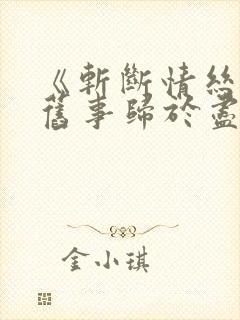 《斬斷情絲
舊事歸於盡
金小琪